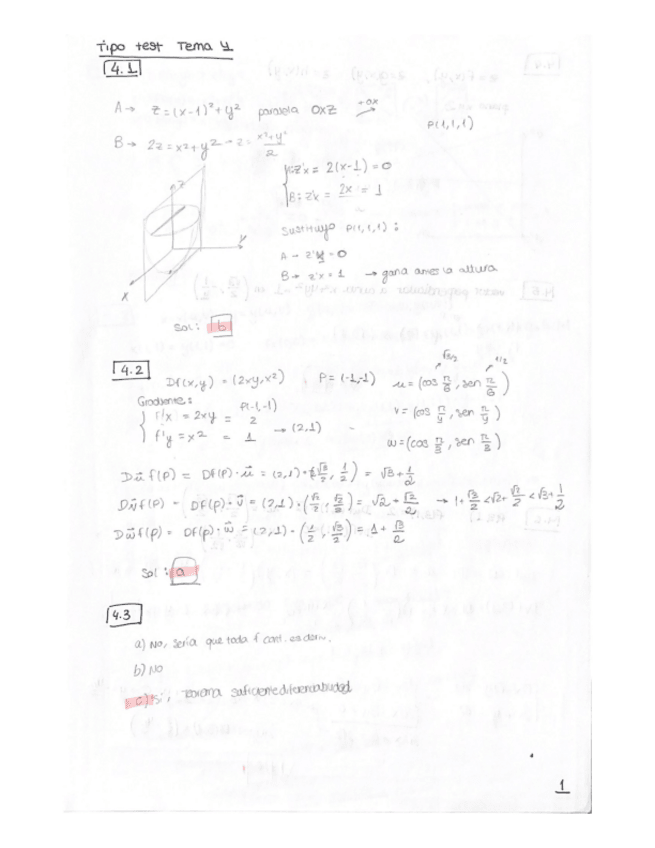 Tipo test Tema 4
4.1
A → z = (x-1)² + y² parabola OXZ +OX → P(1,1,1)
B → 2z = x² + y² → z = x²+y² / 2
A: z'x = 2(x-1) = 0
B: z'x = 2x/2 = 1
Sustituyo P(1,1,1):
A → z'x = 0
B → z'x = 1 → gana antes la altura
z
y
x
Sol: b
4.2
Df(x,y) = (2xy, x²) P = (-1,-1) u = (cos π/6, sen π/6) √3/2 1/2
Gradiente: P(-1,-1)
f'x = 2xy = 2
f'y = x² = 1 → (2,1)
v = (cos π/4, sen π/4)
w = (cos π/3, sen π/3)
Dūf(P) = Df(P)·ū = (2,1)·(√3/2, 1/2) = √3 + 1/2
Dv̄f(P) = Df(P)·v̄ = (2,1)·(√2/2, √2/2) = √2 + √2/2 → 1+√3/2 < √2+√2/2 < √3+1/2
Dw̄f(P) = Df(P)·w̄ = (2,1)·(1/2, √3/2) = 1 + √3/2
Sol: a
4.3
a) No, sería que toda f cont. es deriv.
b) No
c) Si, Teorema suficiente diferenciabilidad
1